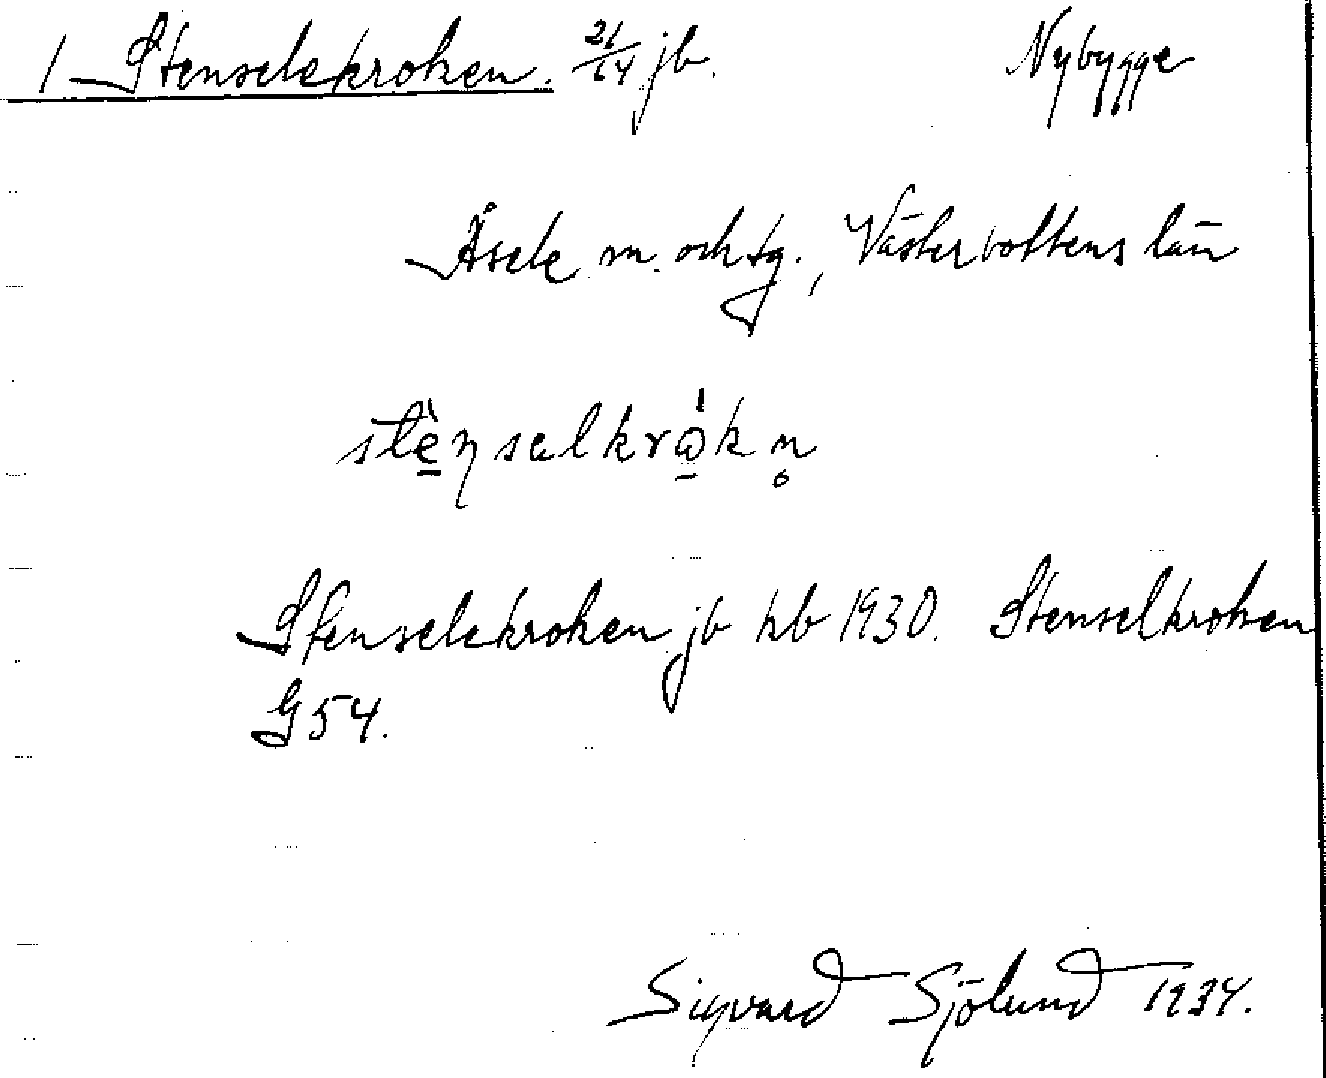 1 Stenselekroken. 21/64 jb. Nybygge
Åsele m. och tg., Västerbottens län
stènselkrókn̥
Stenselekroken jb hb 1930. Stenselkroken
G 54.
Sigvard Sjölund 1934.